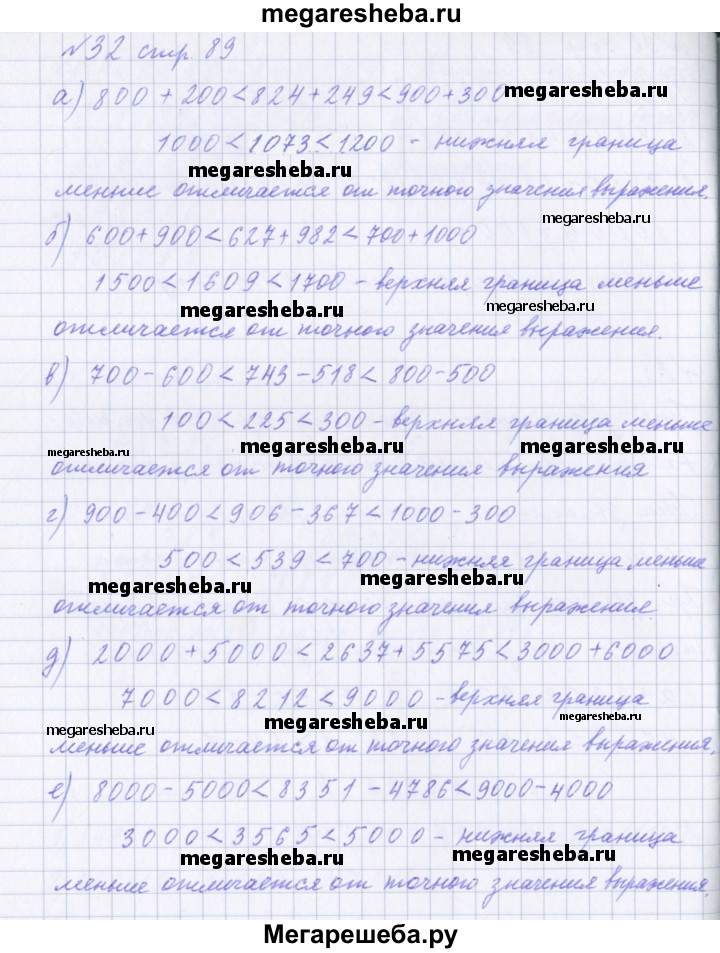 megaresheba.ru
№32 стр. 89
а) 800 + 200 < 824 + 249 < 900 + 300 megaresheba.ru
1000 < 1073 < 1200 - нижняя граница
megaresheba.ru
меньше отличается от точного значения выражения.
megaresheba.ru
б) 600 + 900 < 627 + 982 < 700 + 1000
1500 < 1609 < 1700 - верхняя граница меньше
megaresheba.ru megaresheba.ru
отличается от точного значения выражения.
в) 700 - 600 < 743 - 518 < 800 - 500
100 < 225 < 300 - верхняя граница меньше
megaresheba.ru megaresheba.ru megaresheba.ru
отличается от точного значения выражения
г) 900 - 400 < 906 - 367 < 1000 - 300
500 < 539 < 700 - нижняя граница меньше
megaresheba.ru megaresheba.ru
отличается от точного значения выражения
д) 2000 + 5000 < 2637 + 5575 < 3000 + 6000
7000 < 8212 < 9000 - верхняя граница
megaresheba.ru megaresheba.ru megaresheba.ru
меньше отличается от точного значения выражения.
е) 8000 - 5000 < 8351 - 4786 < 9000 - 4000
3000 < 3565 < 5000 - нижняя граница
megaresheba.ru megaresheba.ru
меньше отличается от точного значения выражения.
Мегарешеба.ру